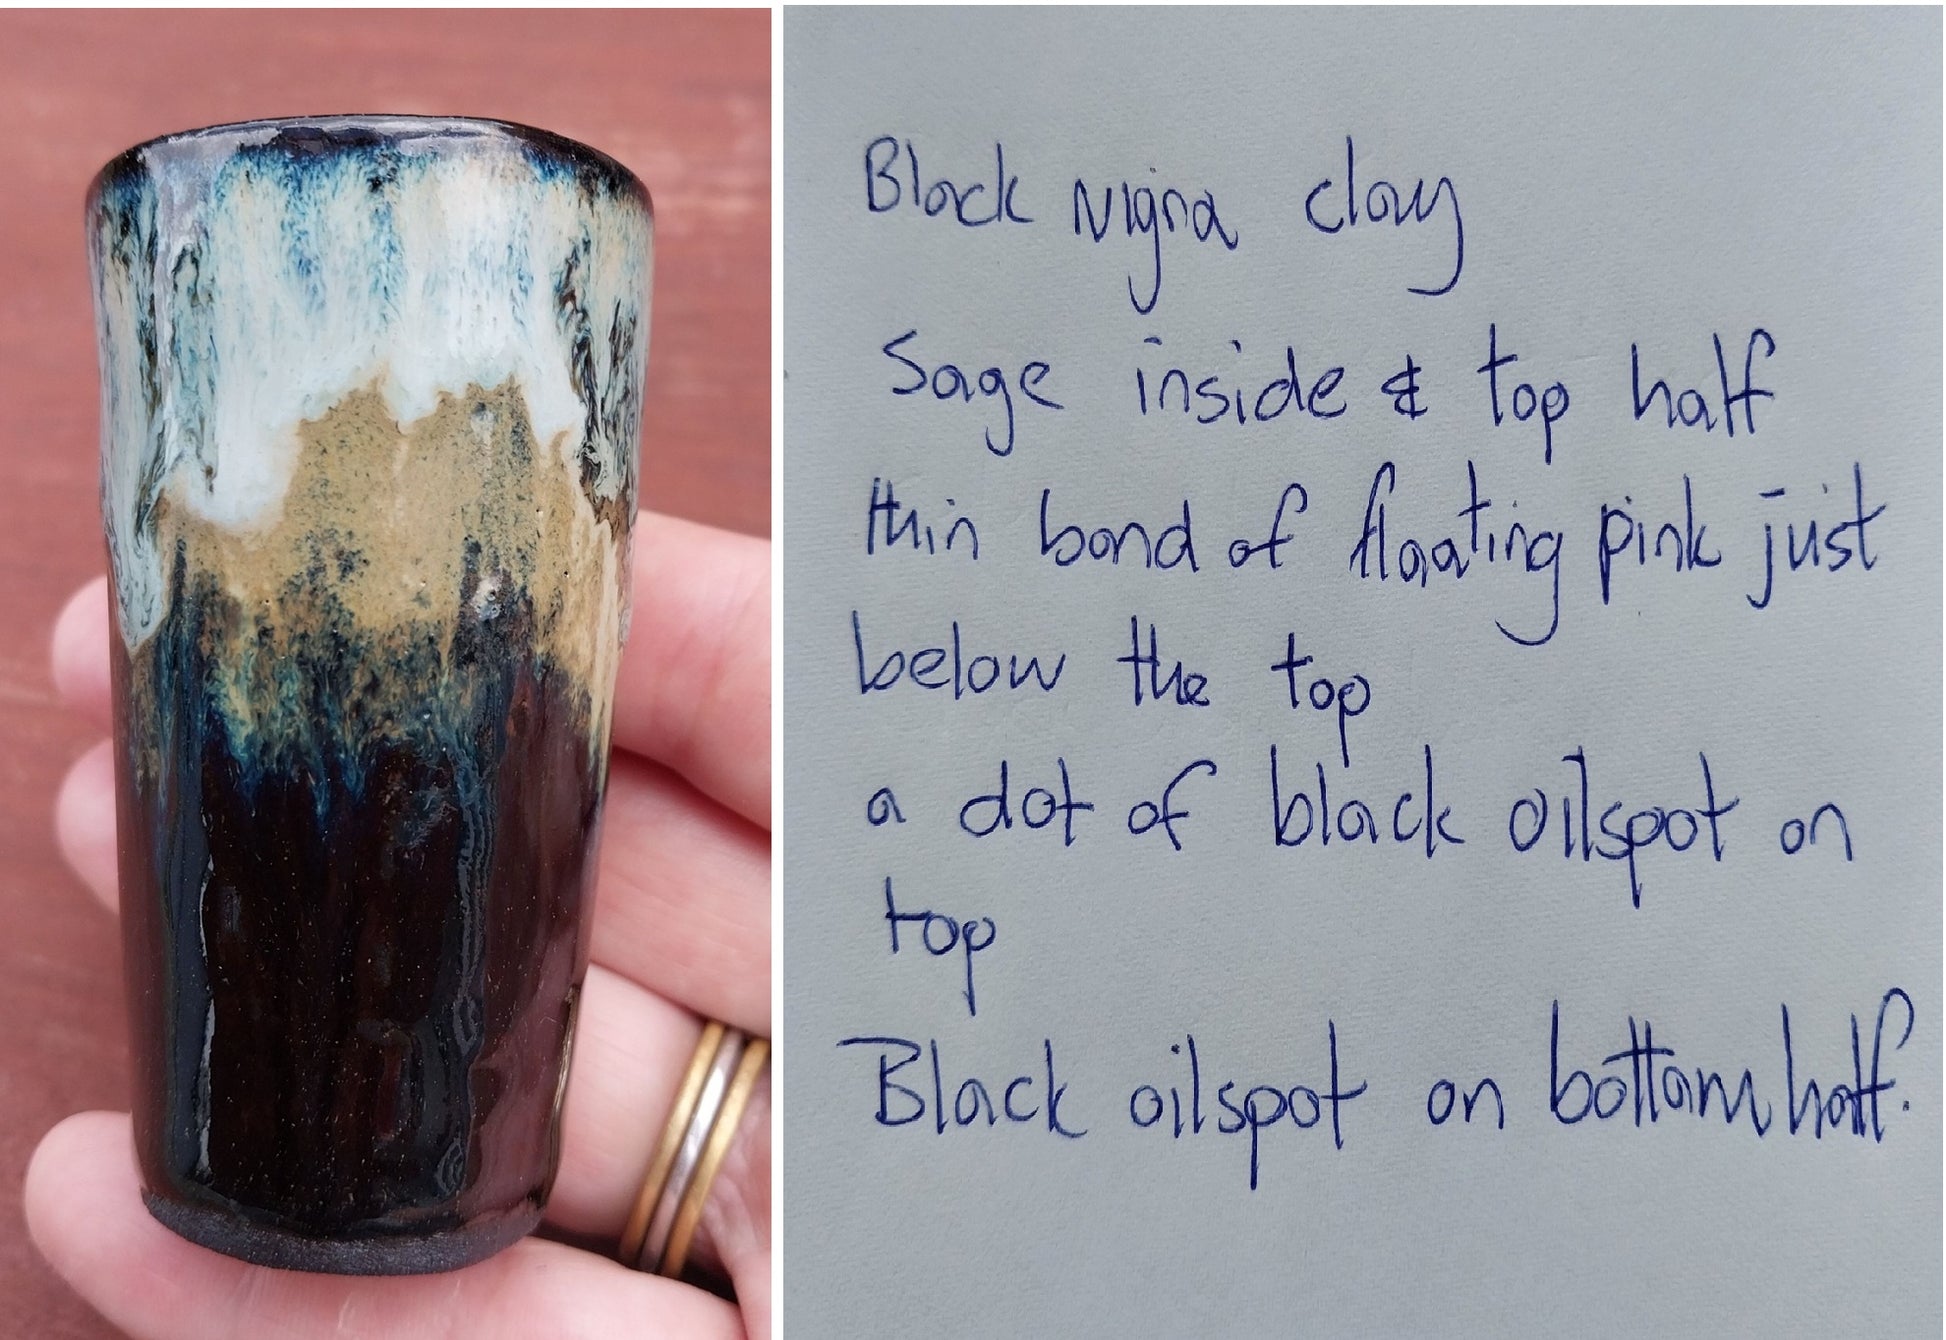 Black Nigra clay
Sage inside & top half
thin band of floating pink just
below the top
a dot of black oilspot on
top
Black oilspot on bottom half.